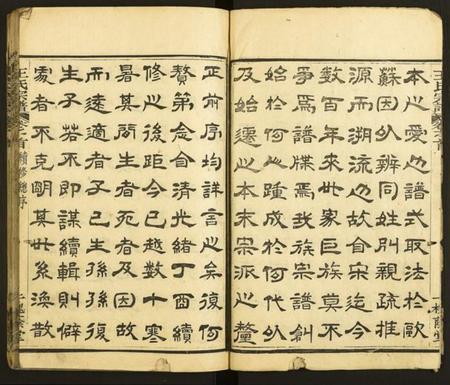 王氏宗譜 卷之首
本之愛也譜式取法於歐
蘇因以辨同姓別親疏推
源而溯流也故自宋迄今
數百年來世家巨族莫不
爭為譜牒焉我族宗譜創
始於何踵成於何代以
及始遷之本末宗派之釐
正前序均詳言之矣復何
贅第念自清光緒丁酉續
修之後距今已越數十寒
暑其間生者死者及因故
而遠適者子已生孫孫復
生子若不即謀續輯則僻
處者不克明其世系渙散
王氏宗譜 卷之首 續修總序